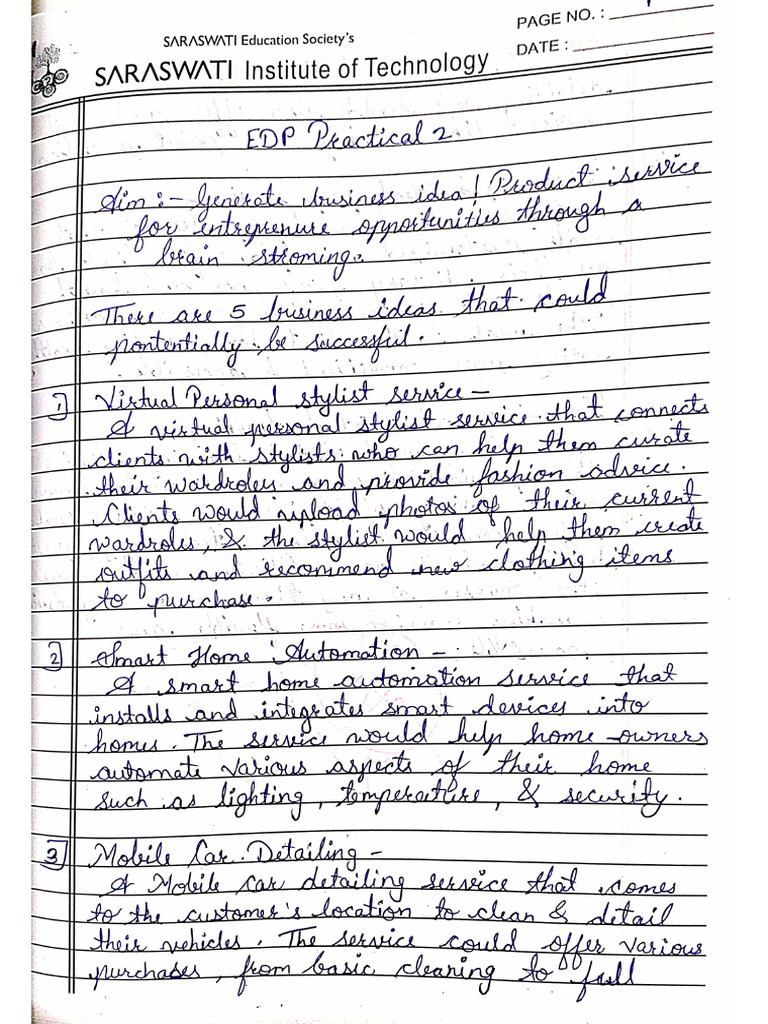 SARASWATI Education Society's
SARASWATI Institute of Technology
PAGE NO. :
DATE :
EDP Practical 2.
Aim :- Generate business idea! Product service
for entreprenure opportunities through a
brain stroming.
There are 5 business ideas that could
pontentially be successful.
1) Virtual Personal stylist service -
A virtual personal stylist service that connects
clients with stylists who can help them curate
their wardroles and provide fashion advice.
Clients would upload photos of their current
wardroles, & the stylist would help them create
outfits and recommend new clothing items
to purchase.
2) Smart Home Automation -
A smart home automation service that
installs and integrates smart devices into
homes. The service would help home-owners
automate various aspects of their home
such as lighting, temperature, & security.
3) Mobile Car Detailing -
A Mobile car detailing service that comes
to the customer's location to clean & detail
their vehicles. The service could offer various
purchases, from basic cleaning to full